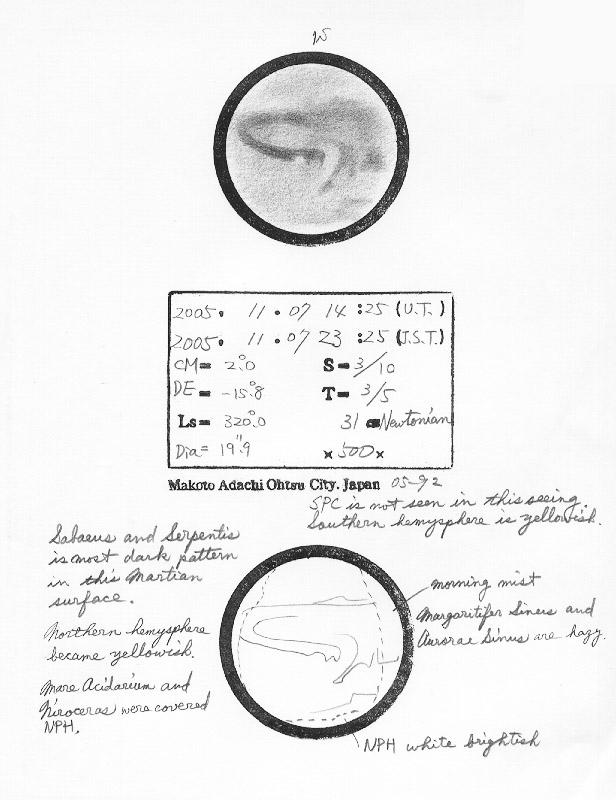 2005. 11.07 14:25 (U.T.)
2005. 11.07 23:25 (J.S.T.)
CM= 2.°0 S=3/10
DE= -15.°8 T=3/5
Ls= 320.°0 31 cm Newtonian
Dia= 19."9 ×500×
Makoto Adachi Ohtsu City. Japan 05-92
SPC is not seen in this seeing
Southern hemysphere is yellowish.
Sabaeus and Serpentis
is most dark pattern
in this Martian
surface.
Northern hemysphere
became yellowish.
Mare Acidarium and
Niroceras were covered
NPH.
morning mist
Margaritifer Sinus and
Aurorae Sinus are hazy.
NPH white brightish